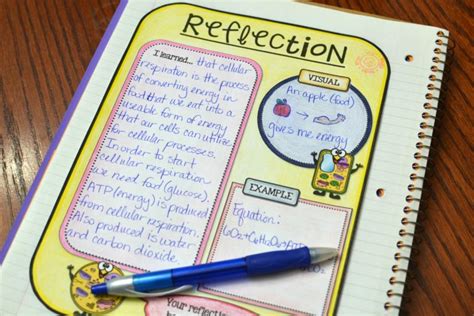 REFLECTION
I learned... that cellular
respiration is the process
of converting energy in
food that we eat into a
useable form of energy
that our cells can utilize
for cellular processes.
In order to start
cellular respiration
we need food (glucose).
ATP (energy) is produced
from cellular respiration.
Also produced is water
and carbon dioxide.
VISUAL
An apple (food)
gives me energy
EXAMPLE
Equation:
Your reflection